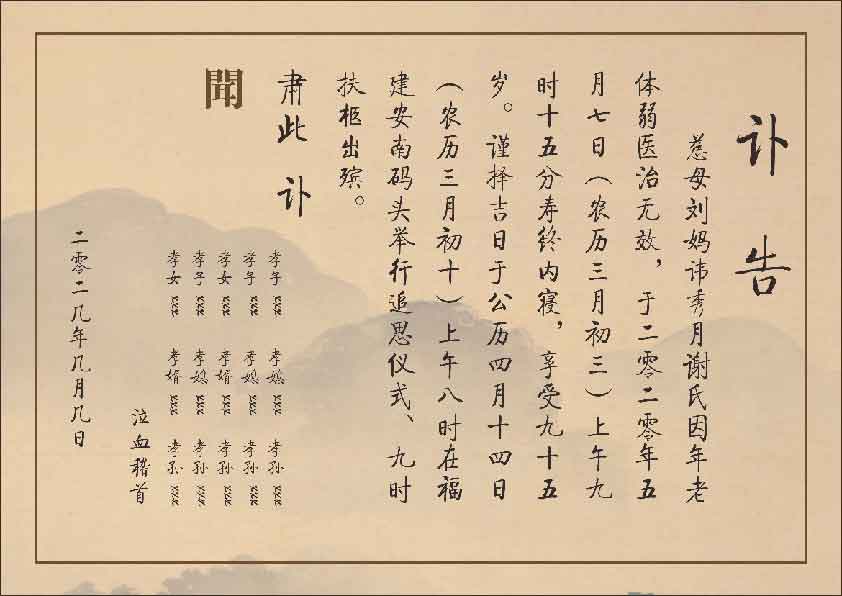 讣告
慈母刘妈讳秀月谢氏因年老
体弱医治无效，于二零二零年五
月七日（农历三月初三）上午九
时十五分寿终内寝，享受九十五
岁。谨择吉日于公历四月十四日
（农历三月初十）上午八时在福
建安南码头举行追思仪式、九时
扶柩出殡。
肃此讣
聞
孝子 XXX 孝媳 XXX 孝孙 XXX
孝子 XXX 孝媳 XXX 孝孙 XXX
孝女 XXX 孝婿 XXX 孝孙 XXX
孝子 XXX 孝媳 XXX 孝孙 XXX
孝女 XXX 孝婿 XXX 孝孙 XXX
泣血稽首
二零二几年几月几日